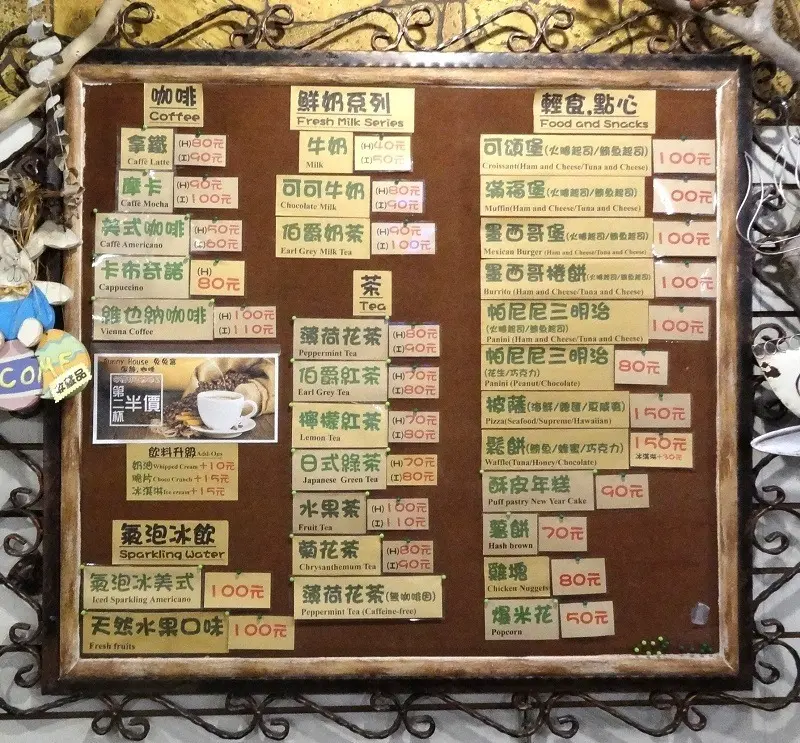 咖啡
Coffee
拿鐵
Caffè Latte
(H)80元
(I)90元
摩卡
Caffè Mocha
(H)90元
(I)100元
美式咖啡
Caffè Americano
(H)50元
(I)60元
卡布奇諾
Cappuccino
(H)
80元
維也納咖啡
Vienna Coffee
(H)100元
(I)110元
Bunny House 兔兔窩
第二杯
半價
飲料升級 Add-Ons
奶油Whipped Cream+10元
脆片Choco Crunch+15元
冰淇淋Ice cream+15元
氣泡冰飲
Sparkling Water
氣泡冰美式
Iced Sparkling Americano
100元
天然水果口味
Fresh fruits
100元
鮮奶系列
Fresh Milk Series
牛奶
Milk
(H)40元
(I)50元
可可牛奶
Chocolate Milk
(H)80元
(I)90元
伯爵奶茶
Earl Grey Milk Tea
(H)90元
(I)100元
茶
Tea
薄荷花茶
Peppermint Tea
(H)80元
(I)90元
伯爵紅茶
Earl Grey Tea
(H)70元
(I)80元
檸檬紅茶
Lemon Tea
(H)70元
(I)80元
日式綠茶
Japanese Green Tea
(H)70元
(I)80元
水果茶
Fruit Tea
(H)100元
(I)110元
菊花茶
Chrysanthemum Tea
(H)80元
(I)90元
薄荷花茶(無咖啡因)
Peppermint Tea (Caffeine-free)
輕食.點心
Food and Snacks
可頌堡(火腿起司/鮪魚起司)
Croissant(Ham and Cheese/Tuna and Cheese)
100元
滿福堡(火腿起司/鮪魚起司)
Muffin(Ham and Cheese/Tuna and Cheese)
00元
墨西哥堡(火腿起司/鮪魚起司)
Mexican Burger (Ham and Cheese/Tuna and Cheese)
100元
墨西哥捲餅(火腿起司/鮪魚起司)
Burrito (Ham and Cheese/Tuna and Cheese)
100元
帕尼尼三明治
(火腿起司/鮪魚起司)
Panini (Ham and Cheese/Tuna and Cheese)
100元
帕尼尼三明治
(花生/巧克力)
Panini (Peanut/Chocolate)
80元
披薩(海鮮/總匯/夏威夷)
Pizza(Seafood/Supreme/Hawaiian)
150元
鬆餅(鮪魚/蜂蜜/巧克力)
Waffle(Tuna/Honey/Chocolate)
150元
冰淇淋+30元
酥皮年糕
Puff pastry New Year Cake
90元
薯餅
Hash brown
70元
雞塊
Chicken Nuggets
80元
爆米花
Popcorn
50元